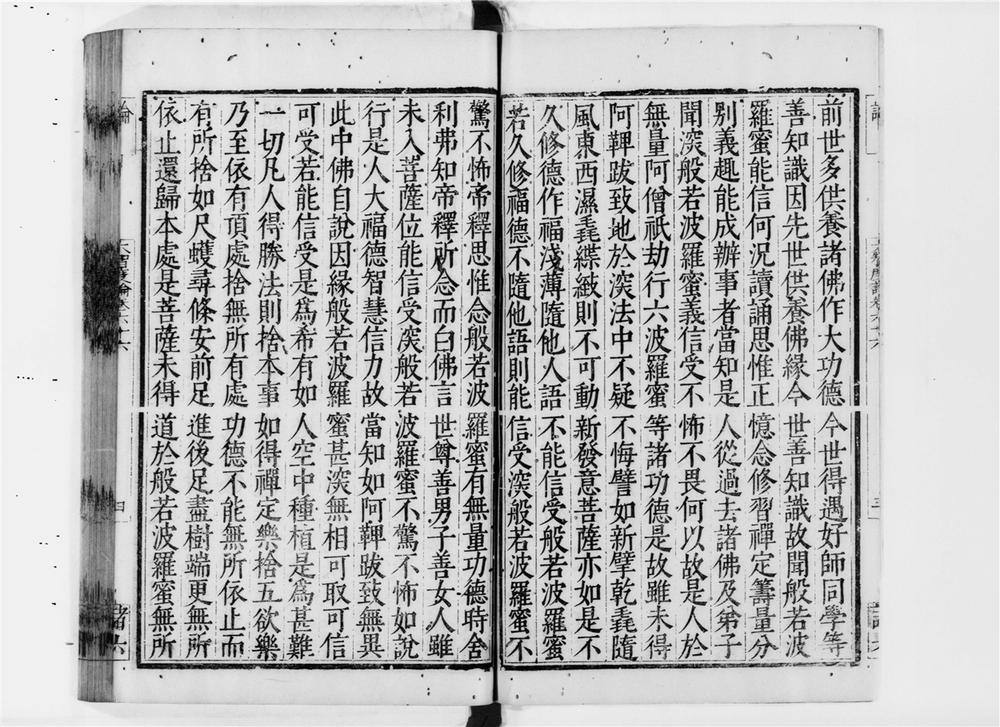 前世多供養諸佛作大功德今世得遇好師同學等
善知識因先世供養佛緣今世善知識故聞般若波
羅蜜能信何況讀誦思惟正憶念修習禪定籌量分
別義趣能成辦事者當知是人從過去諸佛及弟子
聞深般若波羅蜜義信受不怖不畏何以故是人於
無量阿僧祇劫行六波羅蜜等諸功德是故雖未得
阿鞞跋致地於深法中不疑不悔譬如新擘乾毳隨
風東西濕毳緤緻則不可動新發意菩薩亦如是不
久修德作福淺薄隨他人語不能信受般若波羅蜜
若久修福德不隨他語則能信受深般若波羅蜜不
驚不怖帝釋思惟念般若波羅蜜有無量功德時舍
利弗知帝釋所念而白佛言世尊善男子善女人雖
未入菩薩位能信受深般若波羅蜜不驚不怖如說
行是人大福德智慧信力故當知如阿鞞跋致無異
此中佛自說因緣般若波羅蜜甚深無相可取可信
可受若能信受是為希有如人空中種植是為甚難
一切凡人得勝法則捨本事如得禪定樂捨五欲樂
乃至依有頂處捨無所有處功德不能無所依止而
有所捨如尺蠖尋條安前足進後足盡樹端更無所
依止還歸本處是菩薩未得道於般若波羅蜜無所
論
大智度論卷六十六
四